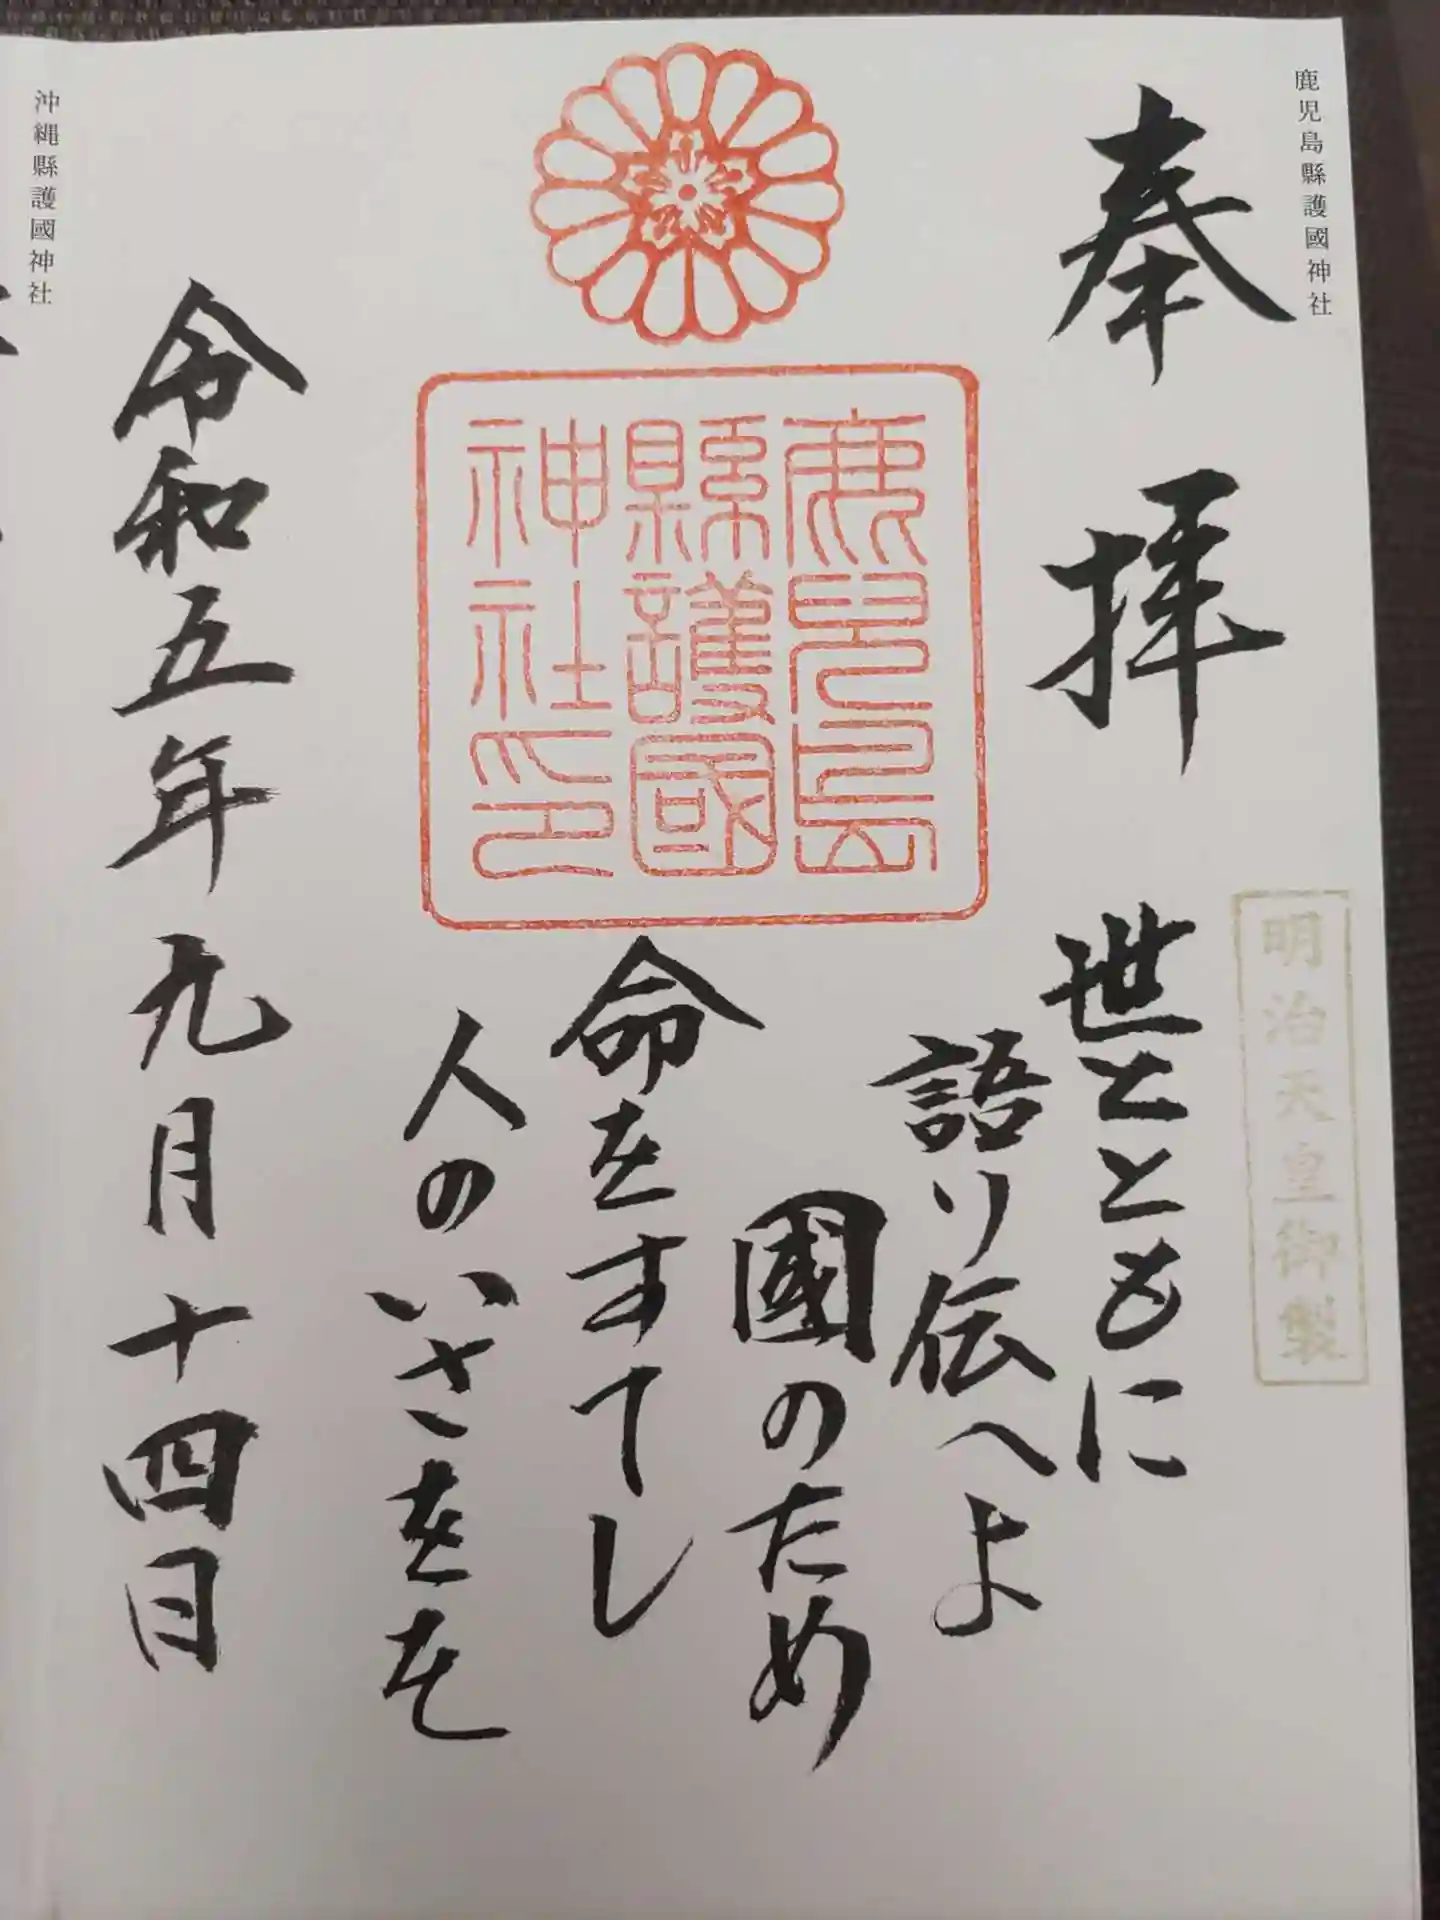 鹿児島縣護國神社
奉拝
明治天皇御製
世とともに
語り伝へよ
國のため
命をすてし
人のいさをを
鹿児島縣護國神社印
令和五年九月十四日
沖縄縣護國神社